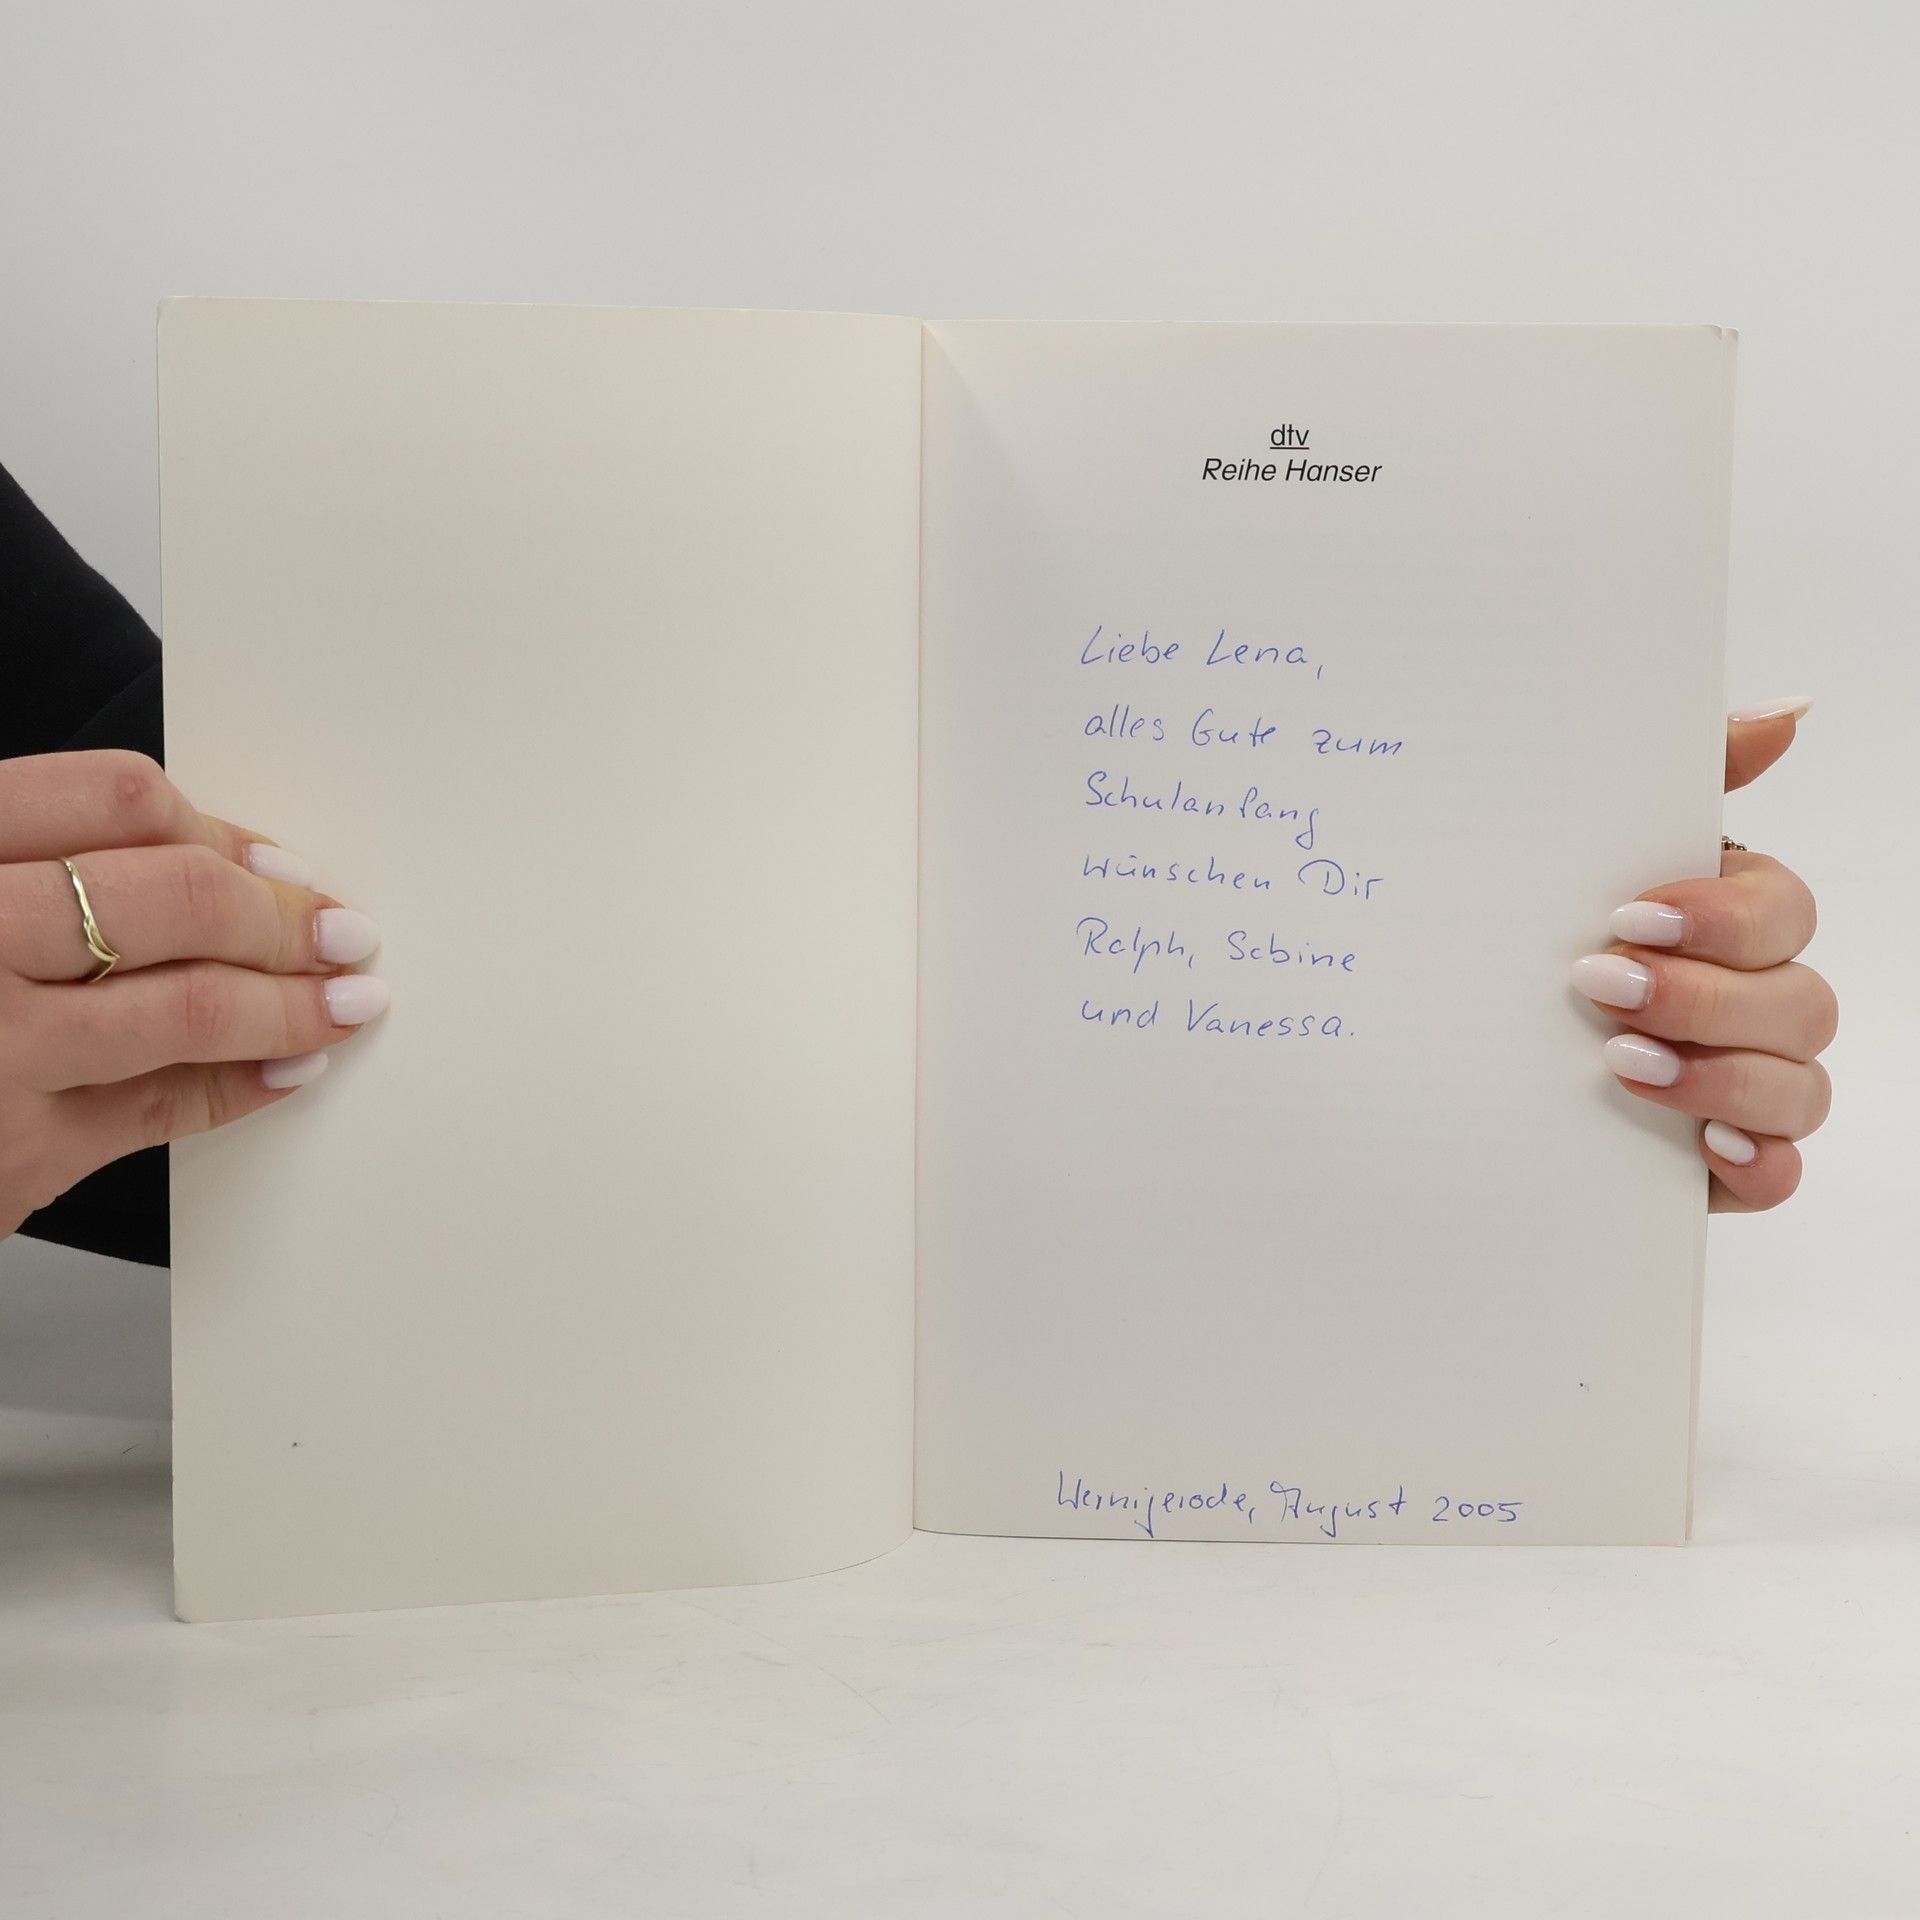 dtv
Reihe Hanser
Liebe Lena,
alles Gute zum
Schulanfang
wünschen Dir
Ralph, Sabine
und Vanessa.
Wernigerode, August 2005